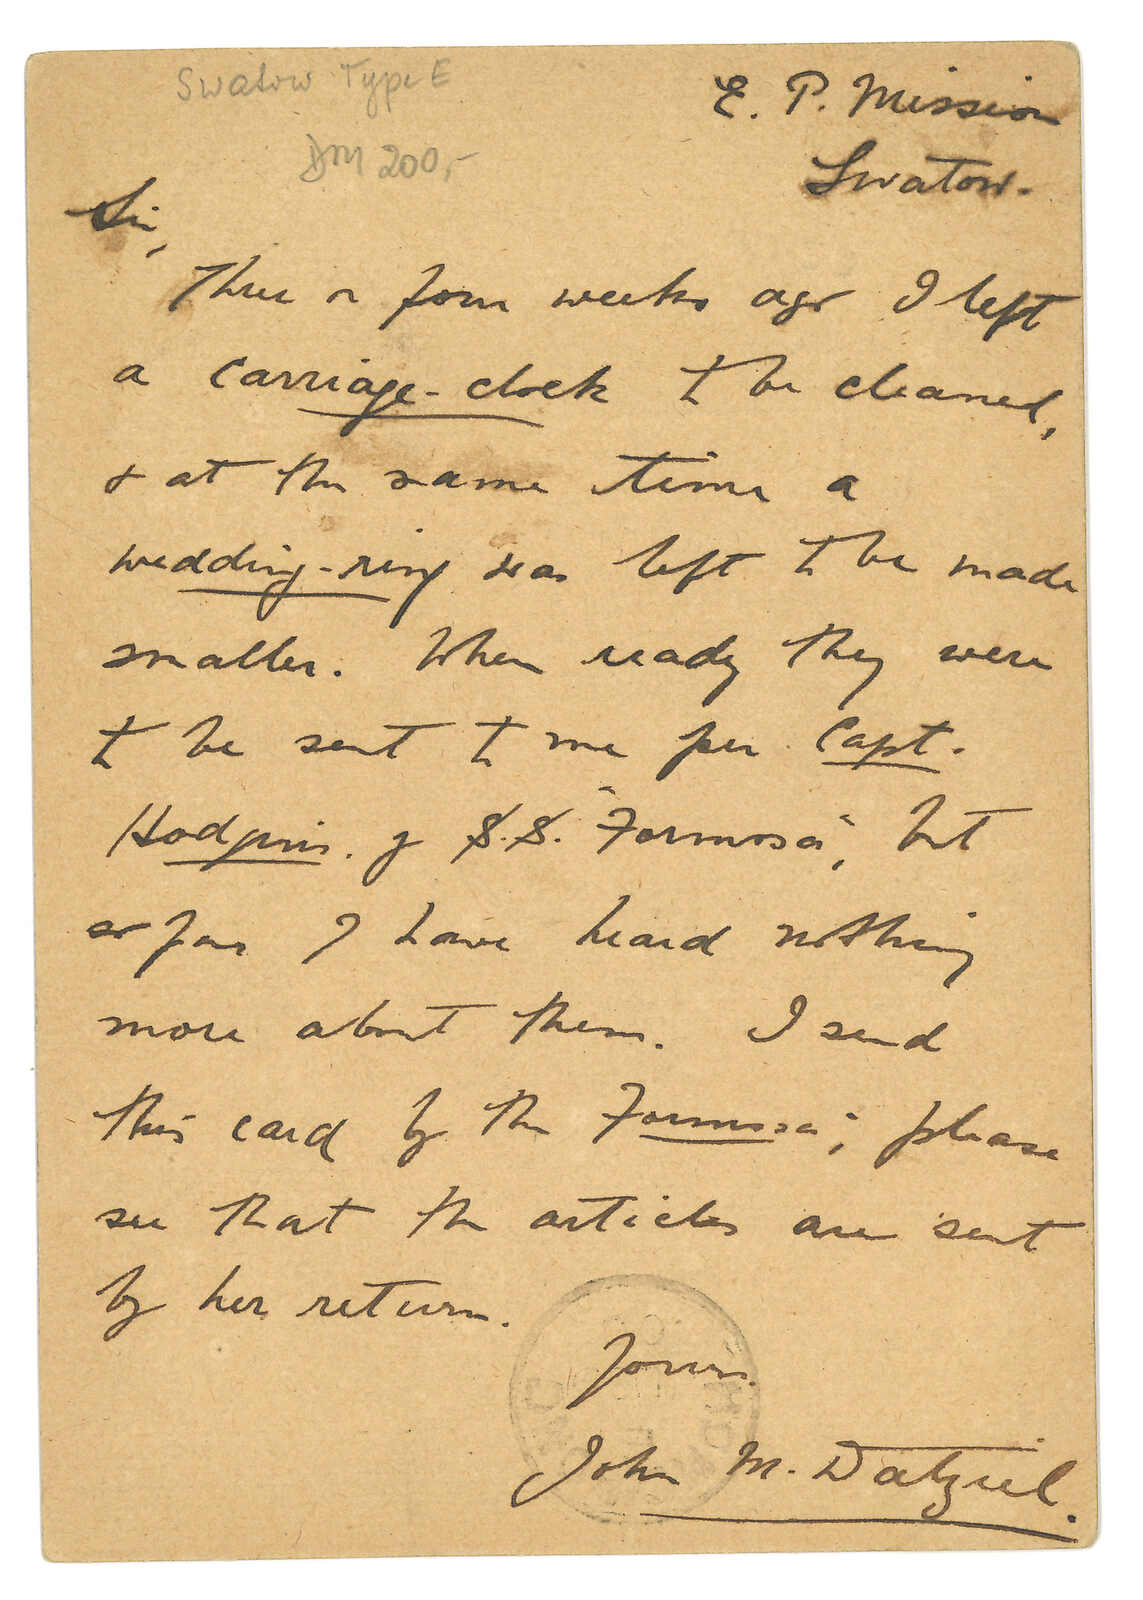 Swatow Type E
DM 200,-
E. P. Mission
Swatow.
Sir,
Three or four weeks ago I left
a carriage-clock to be cleaned,
& at the same time a
wedding-ring was left to be made
smaller. When ready they were
to be sent to me per Capt.
Hodgins. of S.S. "Formosa", but
so far I have heard nothing
more about them. I send
this card by the Formosa; please
see that the articles are sent
by her return.
Yours.
John M. Dalziel.